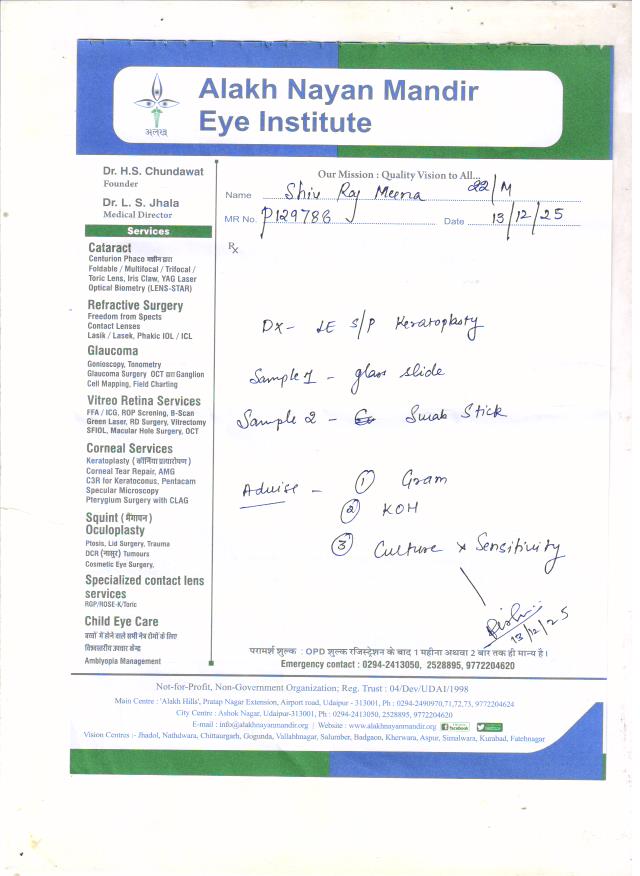 अलख
Alakh Nayan Mandir
Eye Institute
Dr. H.S. Chundawat
Founder
Dr. L. S. Jhala
Medical Director
Services
Cataract
Centurion Phaco मशीन द्वारा
Foldable / Multifocal / Trifocal /
Toric Lens, Iris Claw, YAG Laser
Optical Biometry (LENS-STAR)
Refractive Surgery
Freedom from Spects
Contact Lenses
Lasik / Lasek, Phakic IOL / ICL
Glaucoma
Gonioscopy, Tonometry
Glaucoma Surgery OCT द्वारा Ganglion
Cell Mapping, Field Charting
Vitreo Retina Services
FFA / ICG, ROP Screning, B-Scan
Green Laser, RD Surgery, Vitrectomy
SFIOL, Macular Hole Surgery, OCT
Corneal Services
Keratoplasty (कॉर्निया प्रत्यारोपण)
Corneal Tear Repair, AMG
C3R for Keratoconus, Pentacam
Specular Microscopy
Pterygium Surgery with CLAG
Squint (भैंगापन)
Oculoplasty
Ptosis, Lid Surgery, Trauma
DCR (नासुर) Tumours
Cosmetic Eye Surgery,
Specialized contact lens
services
RGP/ROSE-K/Toric
Child Eye Care
बच्चों में होने वाले सभी नैत्र रोगों के लिए
विश्वस्तरीय उपचार केन्द्र
Amblyopia Management
Our Mission : Quality Vision to All...
Name Shiv Raj Meena 22/M
MR No. P129786 Date 13/12/25
Rx
Dx- LE S/P Keratoplasty
Sample 1 - glass slide
Sample 2 - Swab Stick
Advise - ① Gram
② KOH
③ Culture & Sensitivity
13/12/25
परामर्श शुल्क : OPD शुल्क रजिस्ट्रेशन के बाद 1 महीना अथवा 2 बार तक ही मान्य है।
Emergency contact : 0294-2413050, 2528895, 9772204620
Not-for-Profit, Non-Government Organization; Reg. Trust : 04/Dev/UDAI/1998
Main Centre : 'Alakh Hills', Pratap Nagar Extension, Airport road, Udaipur - 313001, Ph : 0294-2490970,71,72,73, 9772204624
City Centre : Ashok Nagar, Udaipur-313001, Ph : 0294-2413050, 2528895, 9772204620
E-mail : info@alakhnayanmandir.org | Website : www.alakhnayanmandir.org facebook
Vision Centres :- Jhadol, Nathdwara, Chittaurgarh, Gogunda, Vallabhnagar, Salumber, Badgaon, Kherwara, Aspur, Simalwara, Kurabad, Fatehnagar